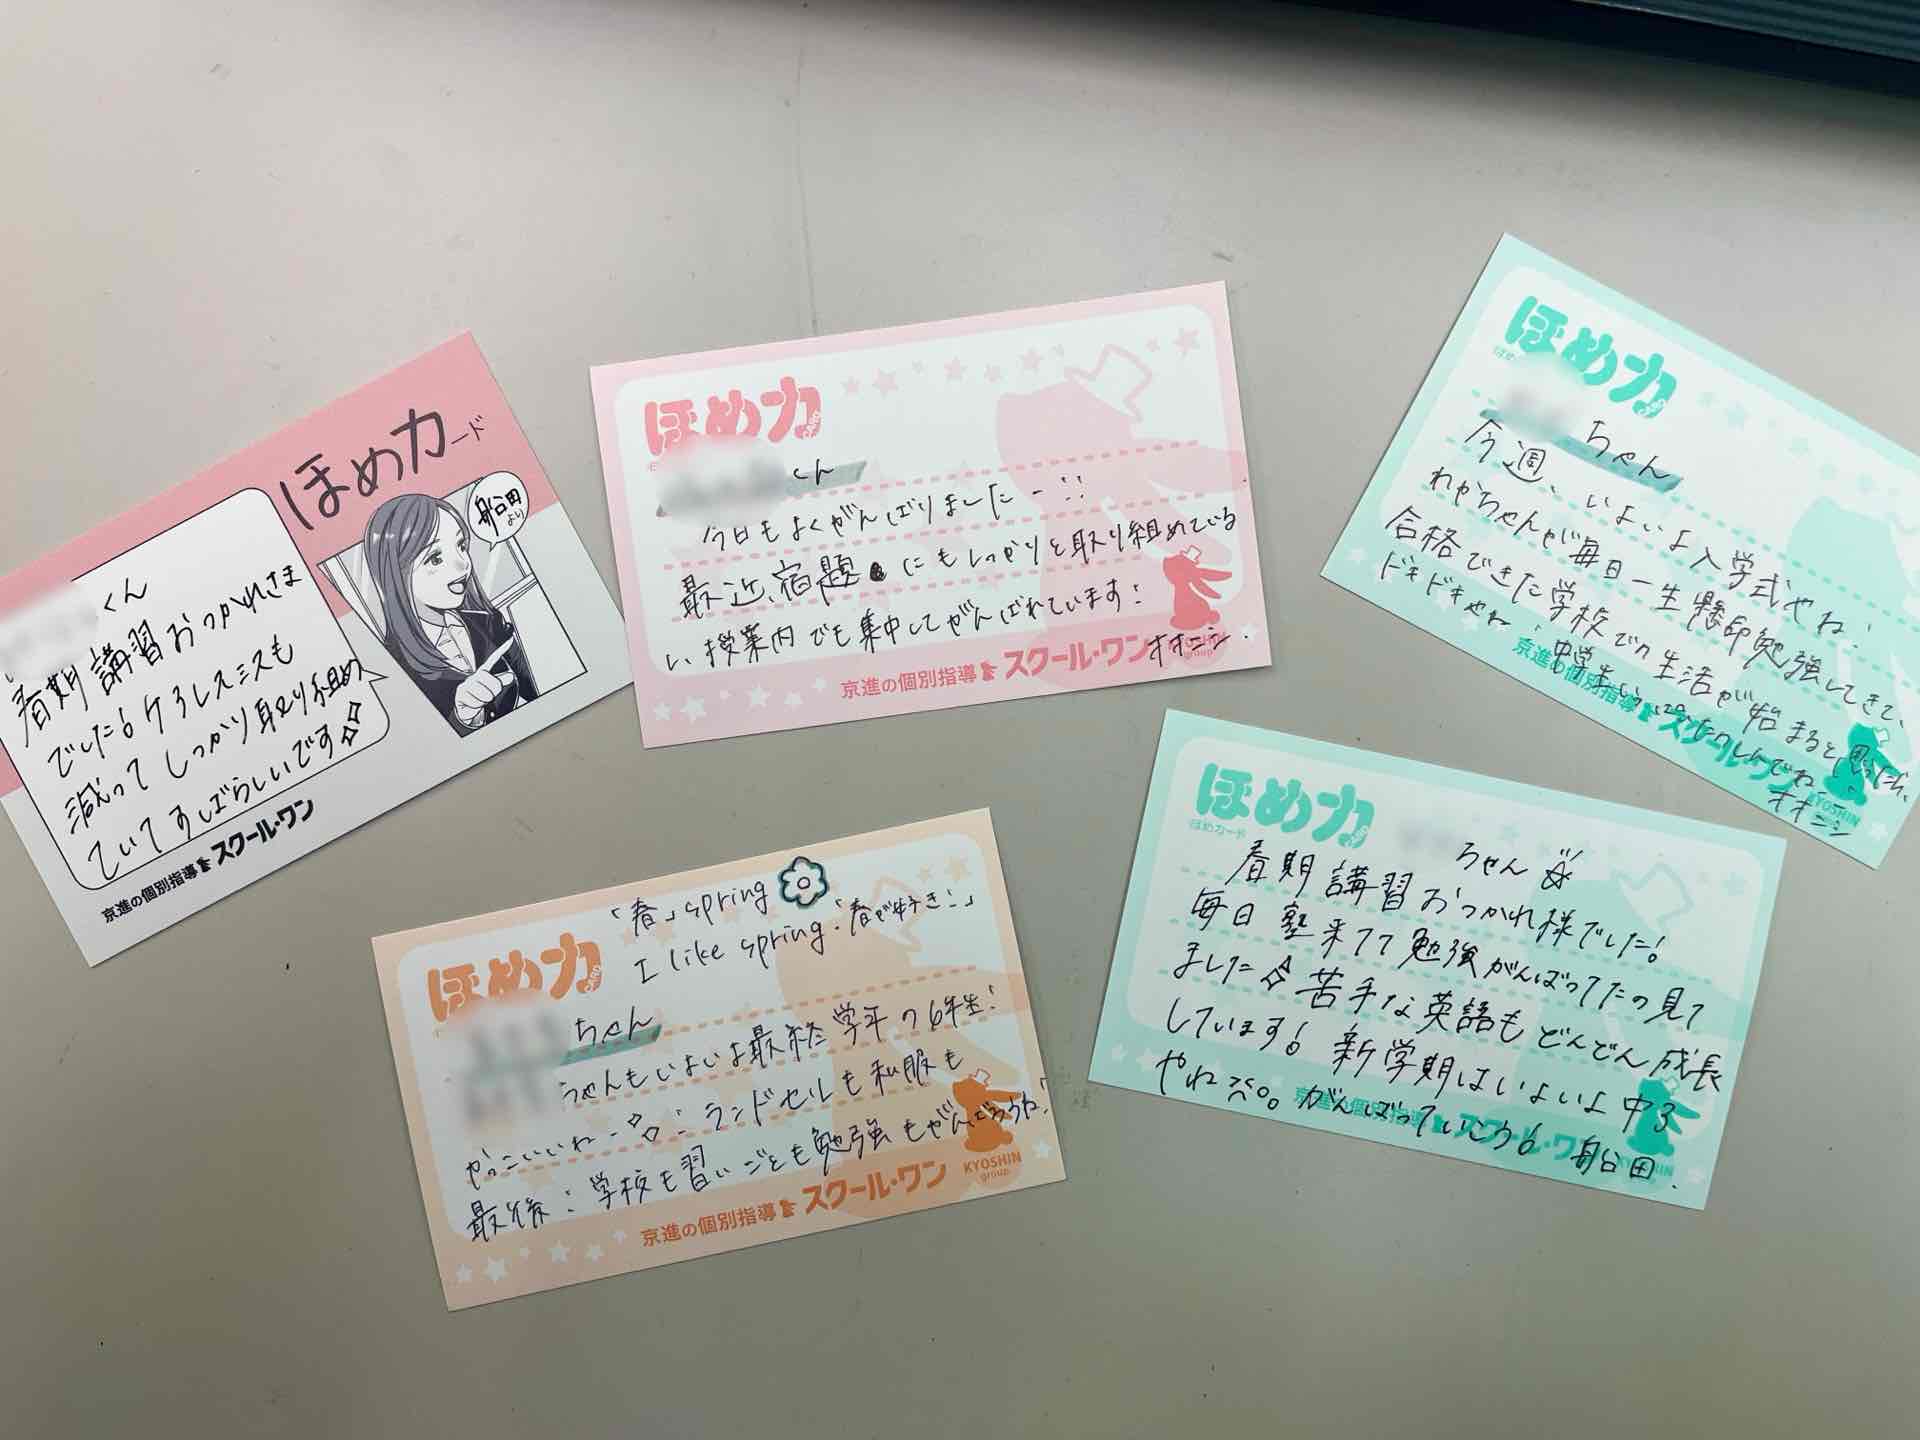 ほめカード
舟谷田
より
くん
春期講習おつかれさま
でした!ケアレスミスも
減ってしっかり取り組め
ていてすばらしいです
京進の個別指導 スクール・ワン
ほめ力
CARD
くん
今日もよくがんばりましたー!!
最近、宿題にもしっかりと取り組めている
し、授業内でも集中してがんばれています!
オオニシ.
京進の個別指導 スクール・ワン
group
ほめ力
CARD
ちゃん
今週、いよいよ入学式やね!
わかちゃんが毎日一生懸命勉強してきて、
合格できた学校での生活が始まると思ったら、
ドキドキやね!
中学生
たのしんでね
オオニシ
京進の個別指導 スクール・ワン
KYOSHIN
group
「春」spring
I like spring.「春が好き!」
ほめ力
CARD
ちゃん
ちゃんもいよいよ最終学年の6年生!
かっこいいねー ランドセルも私服も
最後! 学校も習いごとも勉強もがんばろうね!
京進の個別指導 スクール・ワン
KYOSHIN
group
ほめ力
CARD
ほめカード
ちゃん
春期講習おつかれ様でした!
毎日塾来てて勉強がんばってたの見て
ました 苦手な英語もどんどん成長
しています! 新学期はいよいよ中3
やね がんばっていこう! 舟谷田.
京進の個別指導 スクール・ワン
KYOSHIN
group